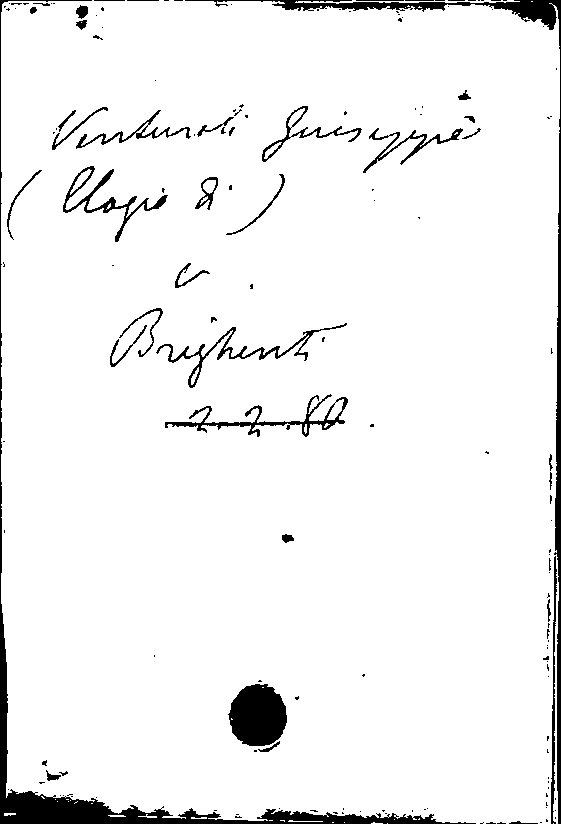 Venturoli Giuseppe
(Elogio di)
v.
Brighenti
2.2.80.